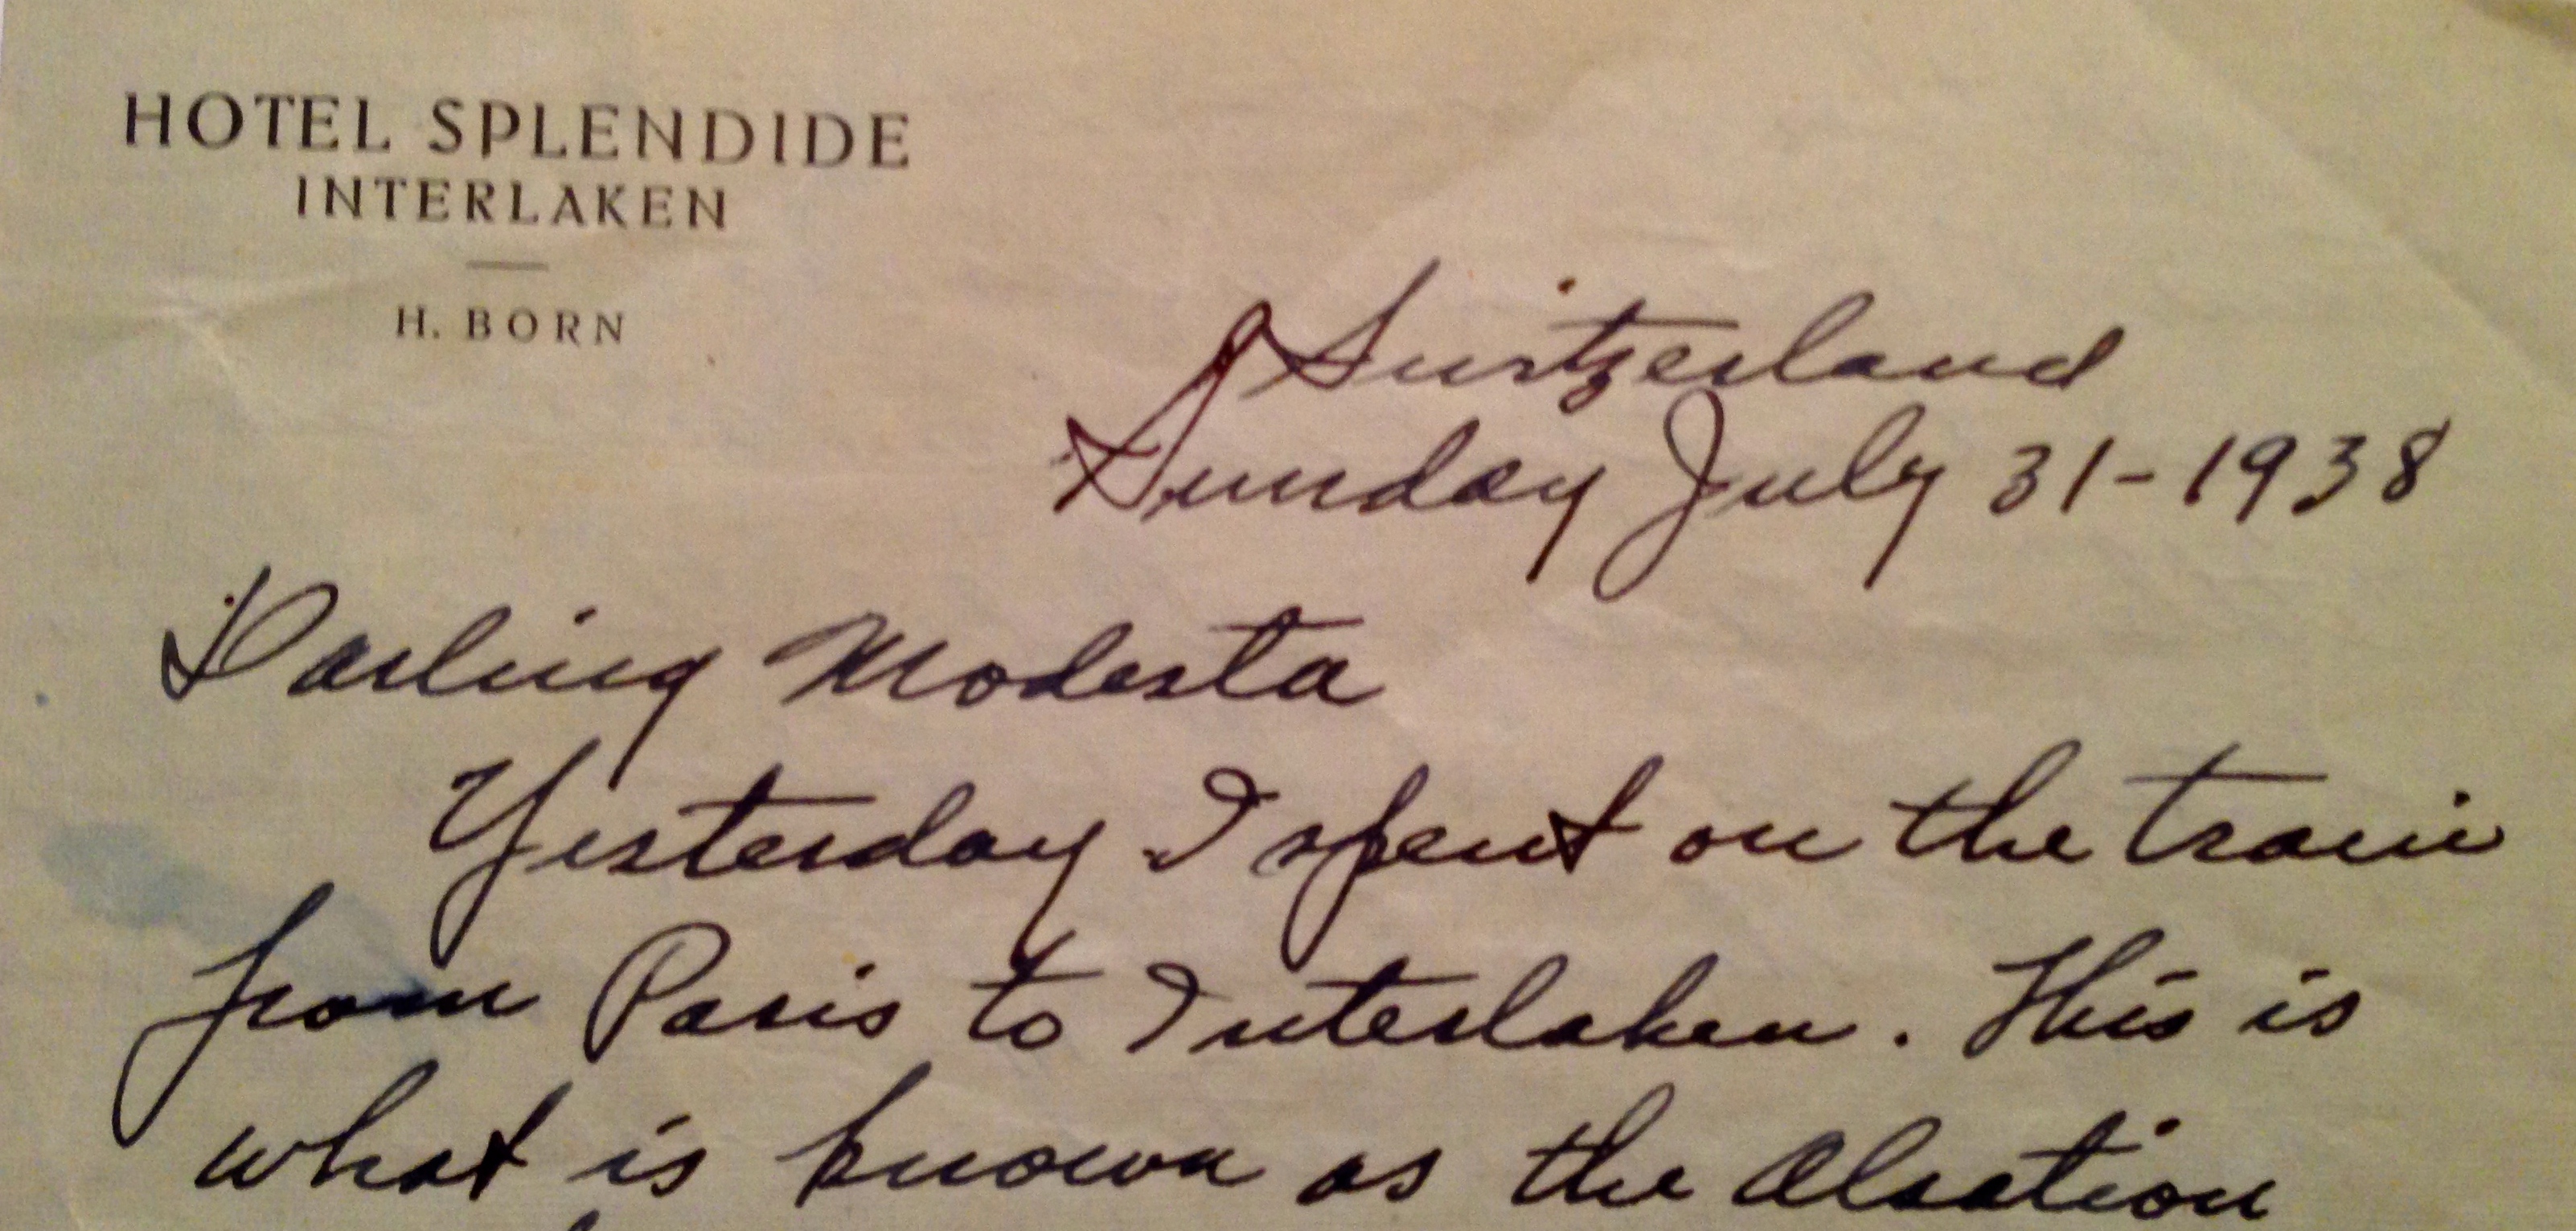 HOTEL SPLENDIDE
INTERLAKEN
H. BORN
Switzerland
Sunday July 31-1938
Darling Modesta
Yesterday I spent on the train
from Paris to Interlaken. This is
what is known as the Alsation